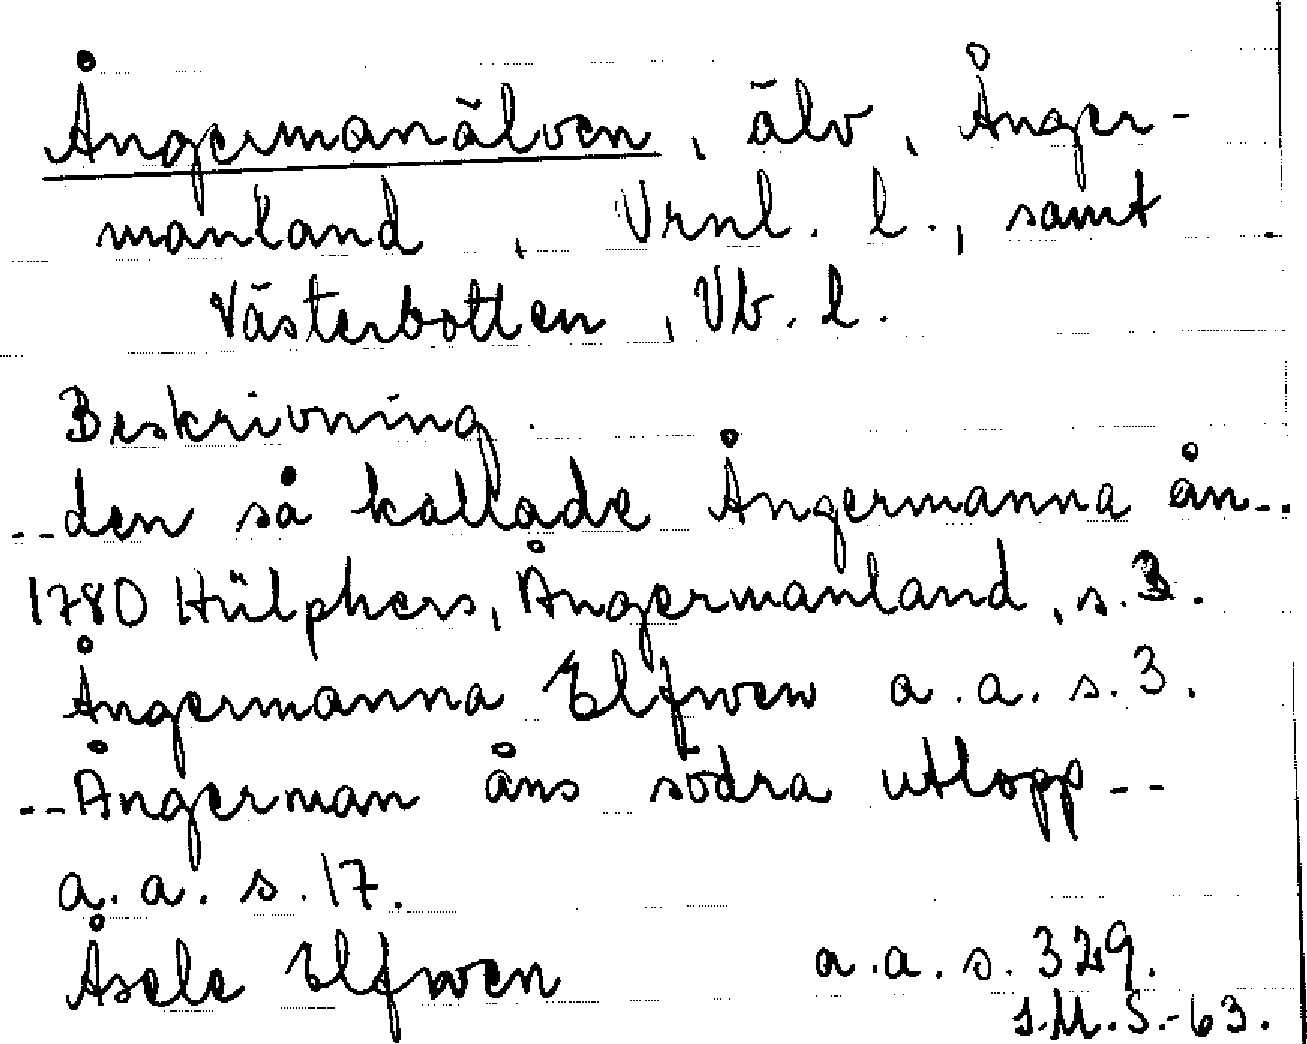 Ångermanälven, älv, Ånger-
manland, Vrnl. l., samt
Västerbotten, Vb. l.
Beskrivning.
--den så kallade Ångermanna ån--
1780 Hülphers, Ångermanland, s. 3.
Ångermanna Elfwen a.a. s. 3.
--Ångerman åns södra utlopp--
a.a. s. 17.
Åsele Elfwen a.a. s. 329.
I.M.S.-63.